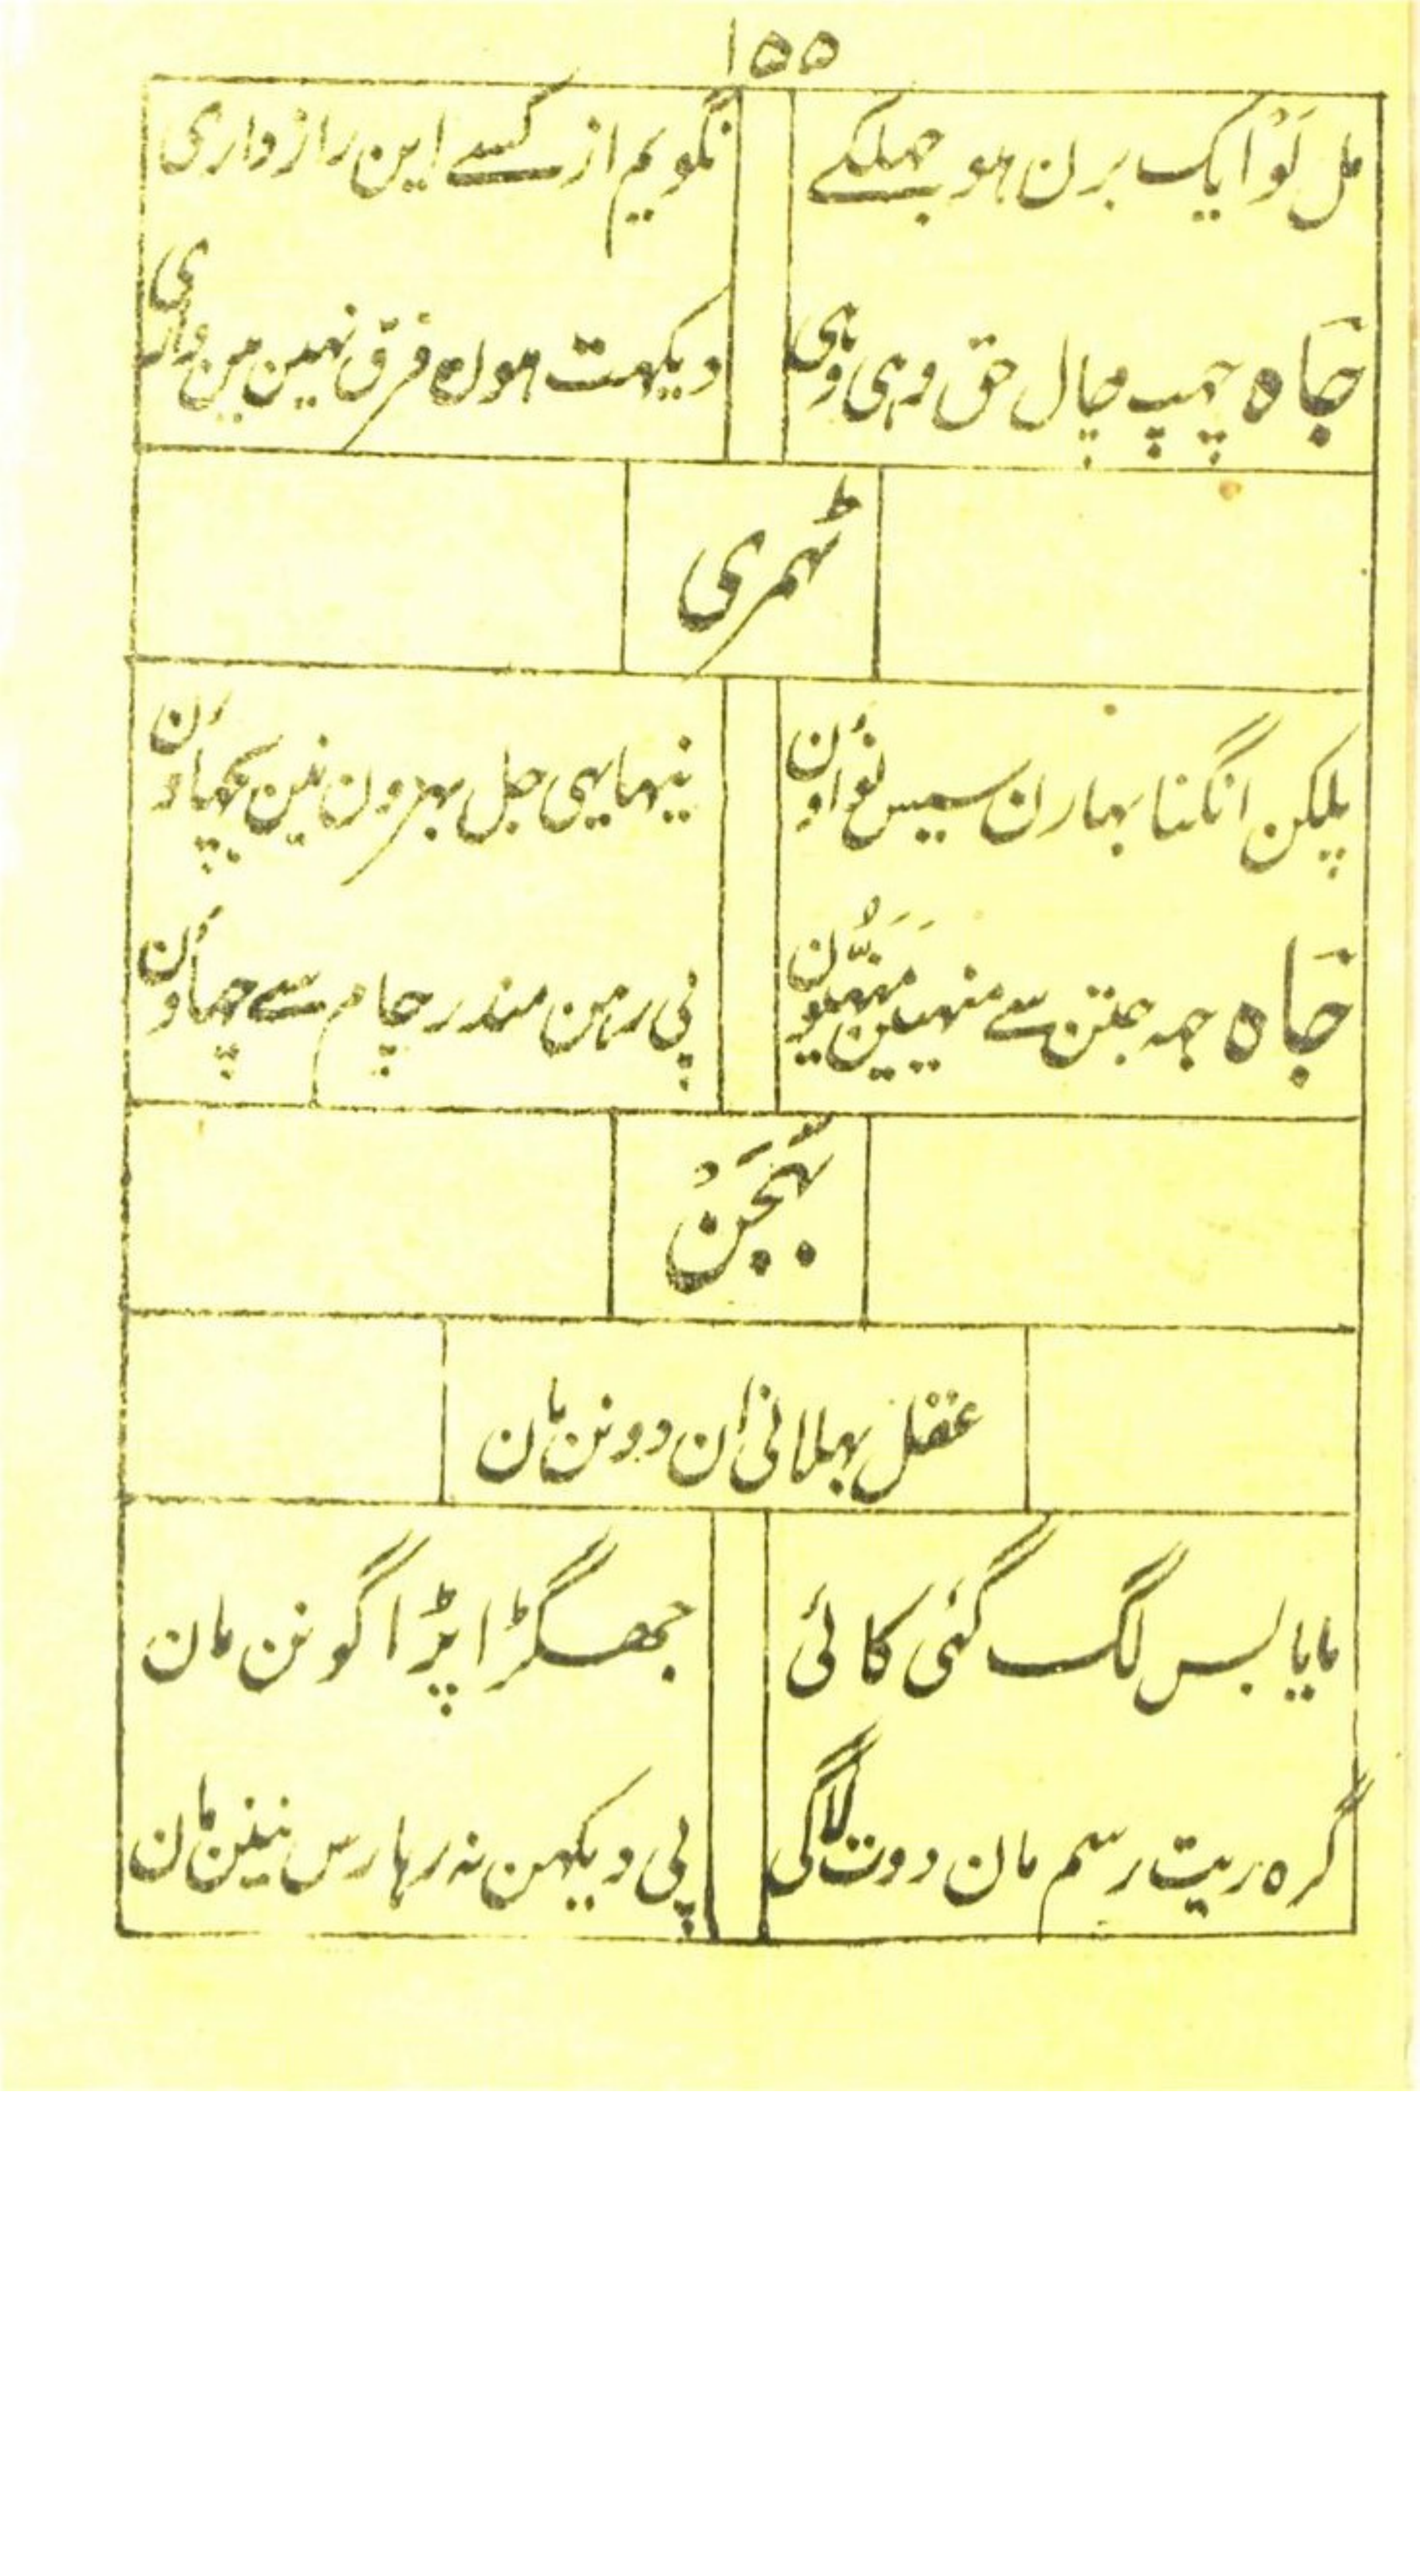 ۱۵۵
مل تو ایک برن ہو جھلکے
نگویم از کسے این راز داری
جاہ چھپ چال حق وہی وہی
دیکھت ہوں فرق نہین مین واری
ٹھمری
پلکن انگنا بہارن سیس نواون
نیہا یہی جل بہرون نین بچھاون
جاہ جہہ جتن سے
پی رہن مندر چام سے چھاون
بھجن
عقل بھلانی ان دونن مان
مایا بس لگ گئی کائی
جھگڑا پڑا گونن مان
گرہ ریت رسم مان دوت لاگی
پی دیکھن نہ رہا رس نینن مان